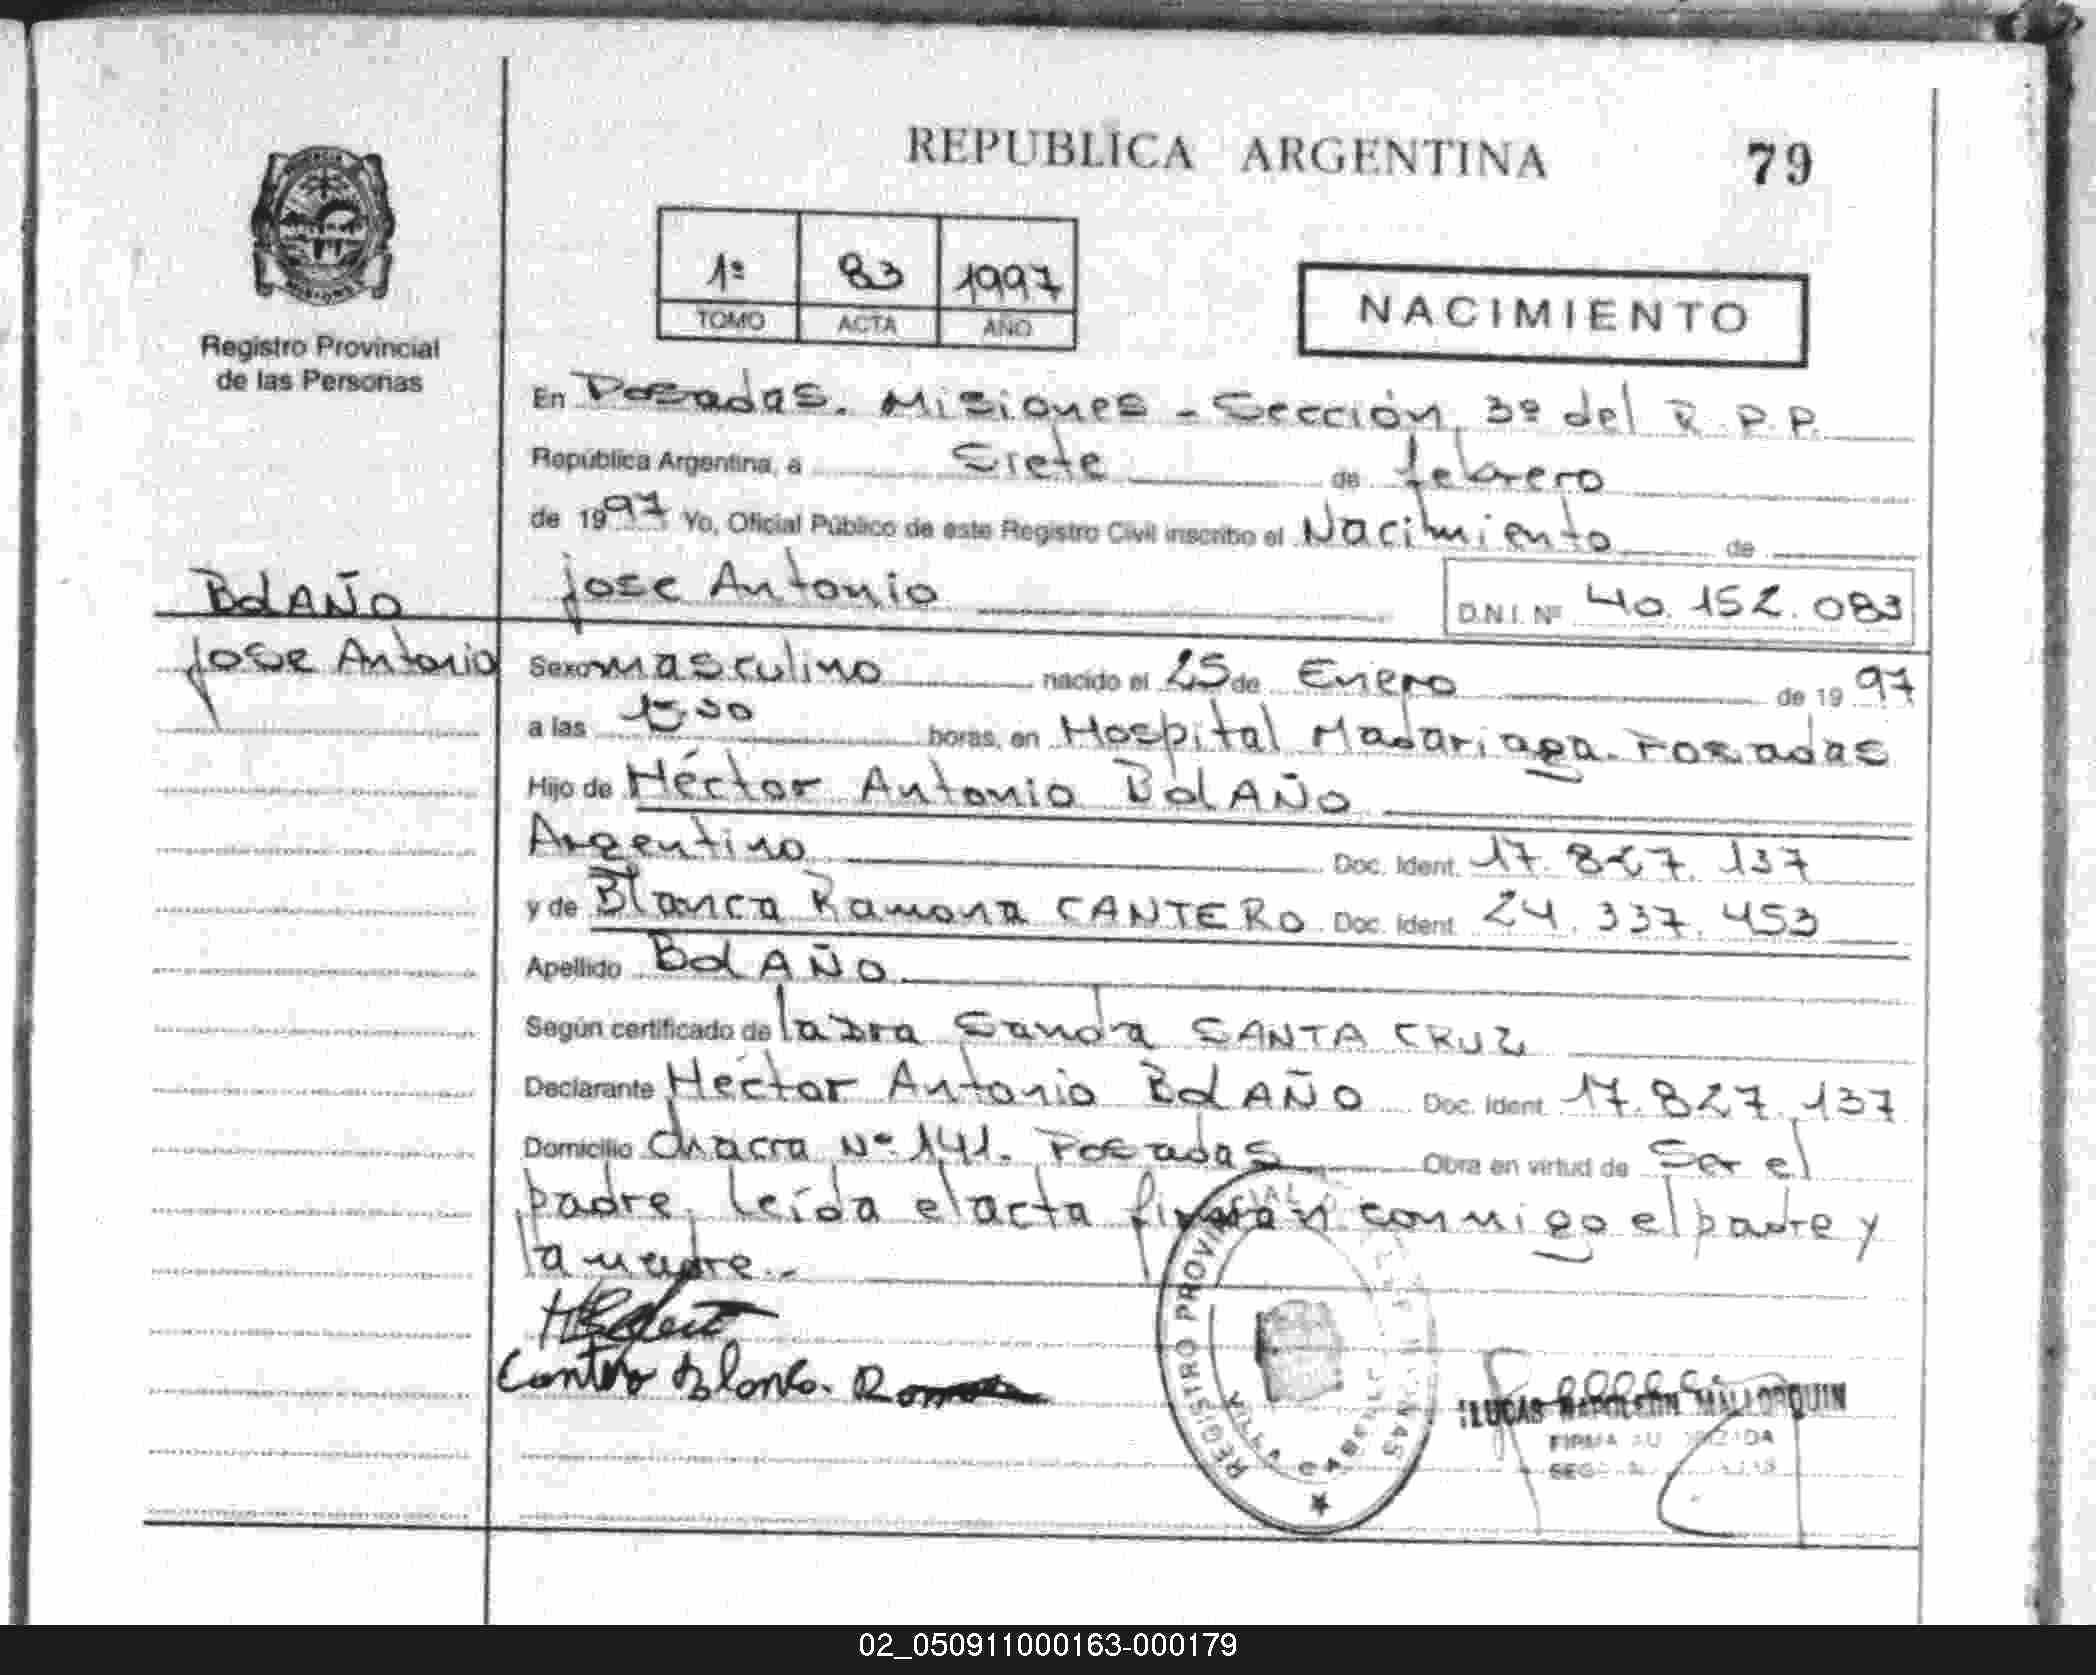 REPUBLICA ARGENTINA
79
1º 83 1997
TOMO ACTA AÑO
NACIMIENTO
Registro Provincial
de las Personas
En Posadas. Misiones - Sección 3º del R.P.P.
República Argentina, a Siete de febrero
de 1997 Yo, Oficial Público de este Registro Civil inscribo el Nacimiento de
BolAÑO
Jose Antonio
jose Antonio
D.N.I. Nº 40.152.083
Sexo masculino nacido el 25 de Enero de 1997
a las horas, en Hospital Madariaga. Posadas
Hijo de Héctor Antonio BolAÑO
Argentino Doc. Ident. 17.827.137
y de Blanca Ramona CANTERO Doc. Ident. 24.337.453
Apellido BolAÑO
Según certificado de la Dra Sandra SANTA CRUZ
Declarante Héctor Antonio BolAÑO Doc. Ident. 17.827.137
Domicilio Chacra Nº 141. Posadas Obra en virtud de Ser el
padre. Leída el acta firman conmigo el padre y
la madre.-
Cantero Blanca. Ramona
REGISTRO PROVINCIAL DE LAS PERSONAS
VILLA CABELLO
LUCAS NAPOLEON MALLORQUIN
FIRMA AUTORIZADA
02_050911000163-000179